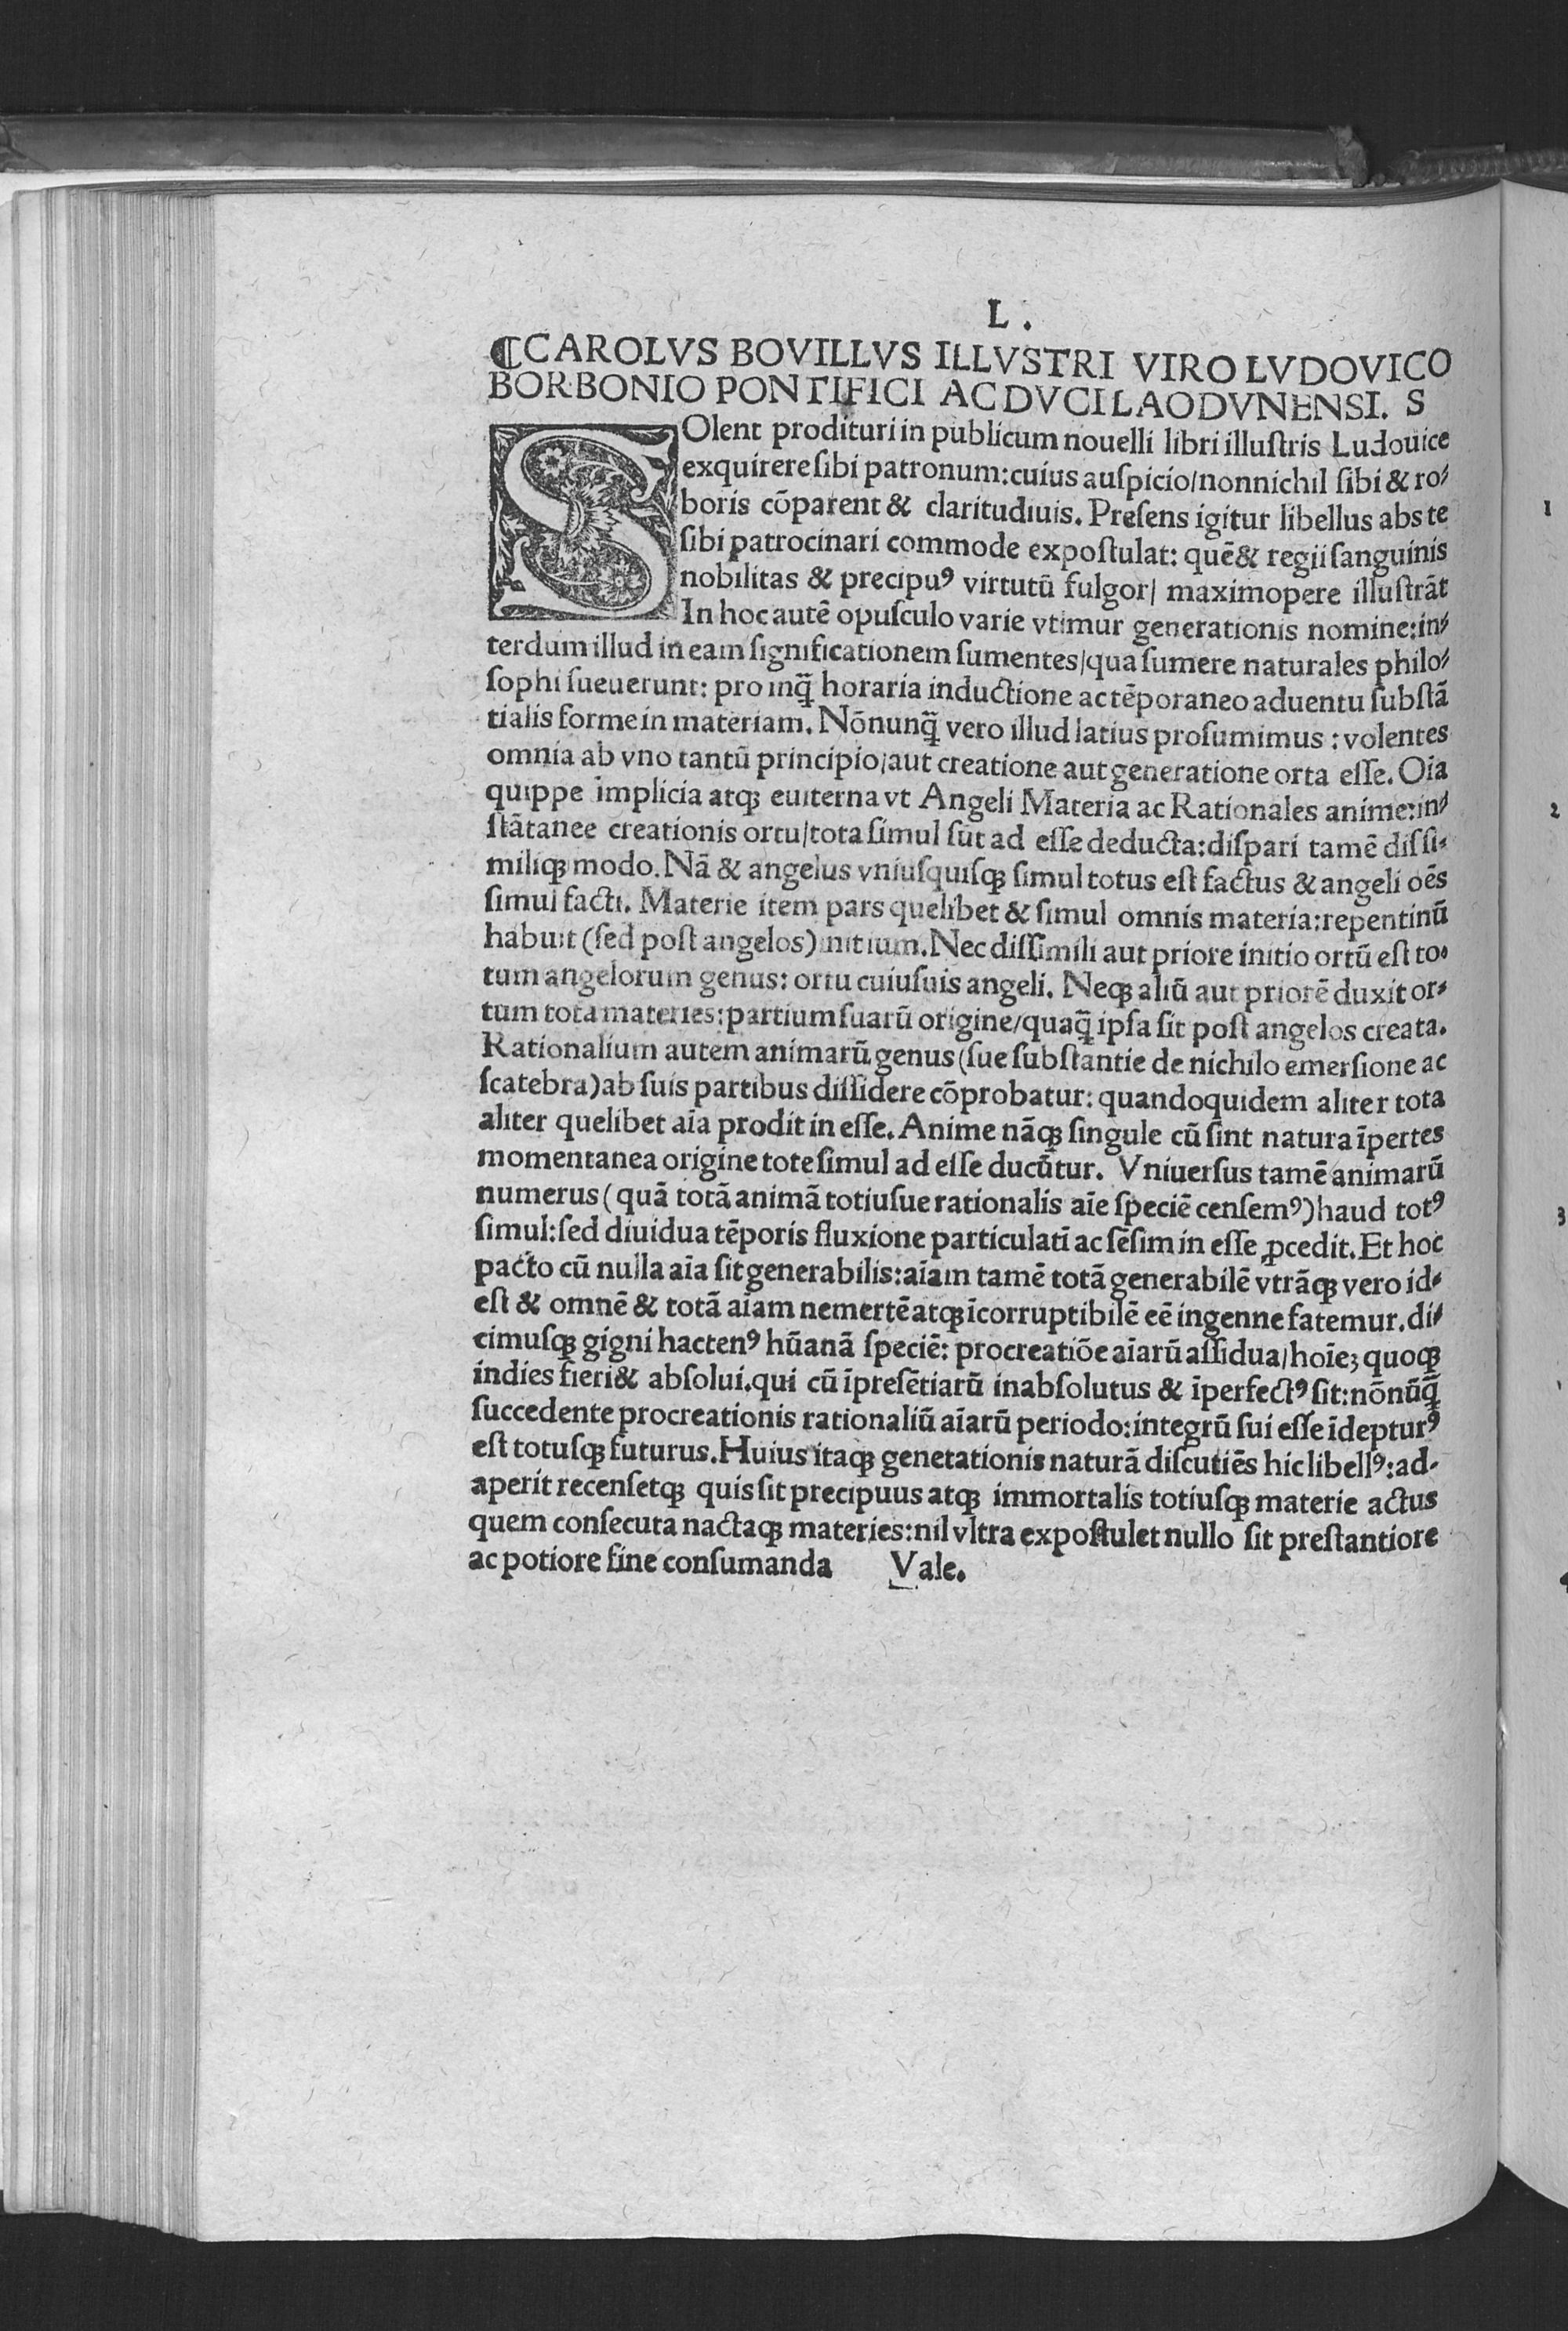 L.
⁋CAROLVS BOVILLVS ILLVSTRI VIRO LVDOVICO
BORBONIO PONTIFICI AC DVCI LAODVNENSI. S
SOlent prodituri in publicum nouelli libri illuſtris Ludouice
exquirere ſibi patronum: cuius auſpicio/nonnichil ſibi & ro/
boris cōparent & claritudiuis. Preſens igitur libellus abs te
ſibi patrocinari commode expoſtulat: quē & regii ſanguinis
nobilitas & precipuꝰ virtutū fulgor/ maximopere illuſtrāt
In hoc autē opuſculo varie vtimur generationis nomine:in/
terdum illud in eam ſignificationem ſumentes/qua ſumere naturales philo/
ſophi ſueuerunt: pro inq̄ horaria inductione ac tēporaneo aduentu ſubſtā
tialis forme in materiam. Nōnunq̄ vero illud latius proſumimus : volentes
omnia ab vno tantū principio/aut creatione aut generatione orta eſſe. Oīa
quippe implicia atqꝫ euiterna vt Angeli Materia ac Rationales anime:in/
ſtātanee creationis ortu/tota ſimul ſūt ad eſſe deducta:diſpari tamē diſſi-
miliqꝫ modo. Nā & angelus vniuſquiſqꝫ ſimul totus eſt factus & angeli oēs
ſimul facti. Materie item pars quelibet & ſimul omnis materia:repentinū
habuit (ſed poſt angelos) initium. Nec diſſimili aut priore initio ortū eſt to-
tum angelorum genus: ortu cuiuſuis angeli. Neqꝫ aliū aut priorē duxit or-
tum tota materies: partium ſuarū origine/quaq̄ ipſa ſit poſt angelos creata.
Rationalium autem animarū genus (ſue ſubſtantie de nichilo emerſione ac
ſcatebra) ab ſuis partibus diſſidere cōprobatur: quandoquidem aliter tota
aliter quelibet aīa prodit in eſſe. Anime nāqꝫ ſingule cū ſint natura īpertes
momentanea origine tote ſimul ad eſſe ducūtur. Vniuerſus tamē animarū
numerus (quā totā animā totiuſue rationalis aīe ſpeciē cenſemꝰ) haud totꝰ
ſimul: ſed diuidua tēporis fluxione particulatī ac ſēſim in eſſe ꝓcedit. Et hoc
pacto cū nulla aīa ſit generabilis: aīam tamē totā generabilē vtrāqꝫ vero id-
eſt & omnē & totā aīam nemertē atqꝫ īcorruptibilē eē ingenne fatemur. di/
cimuſqꝫ gigni hactenꝰ hūanā ſpeciē: procreatiōe aīarū aſſidua/hoīeꝫ quoqꝫ
indies fieri & abſolui. qui cū īpreſētiarū inabſolutus & īperfectꝰ ſit: nōnūq̄
ſuccedente procreationis rationaliū aīarū periodo: integrū ſui eſſe īdepturꝰ
eſt totuſqꝫ futurus. Huius itaqꝫ genetationis naturā diſcutiēs hic libellꝰ: ad-
aperit recenſetqꝫ quis ſit precipuus atqꝫ immortalis totiuſqꝫ materie actus
quem conſecuta nactaqꝫ materies: nil vltra expoſtulet nullo ſit preſtantiore
ac potiore fine conſumanda Vale.
1
2
3